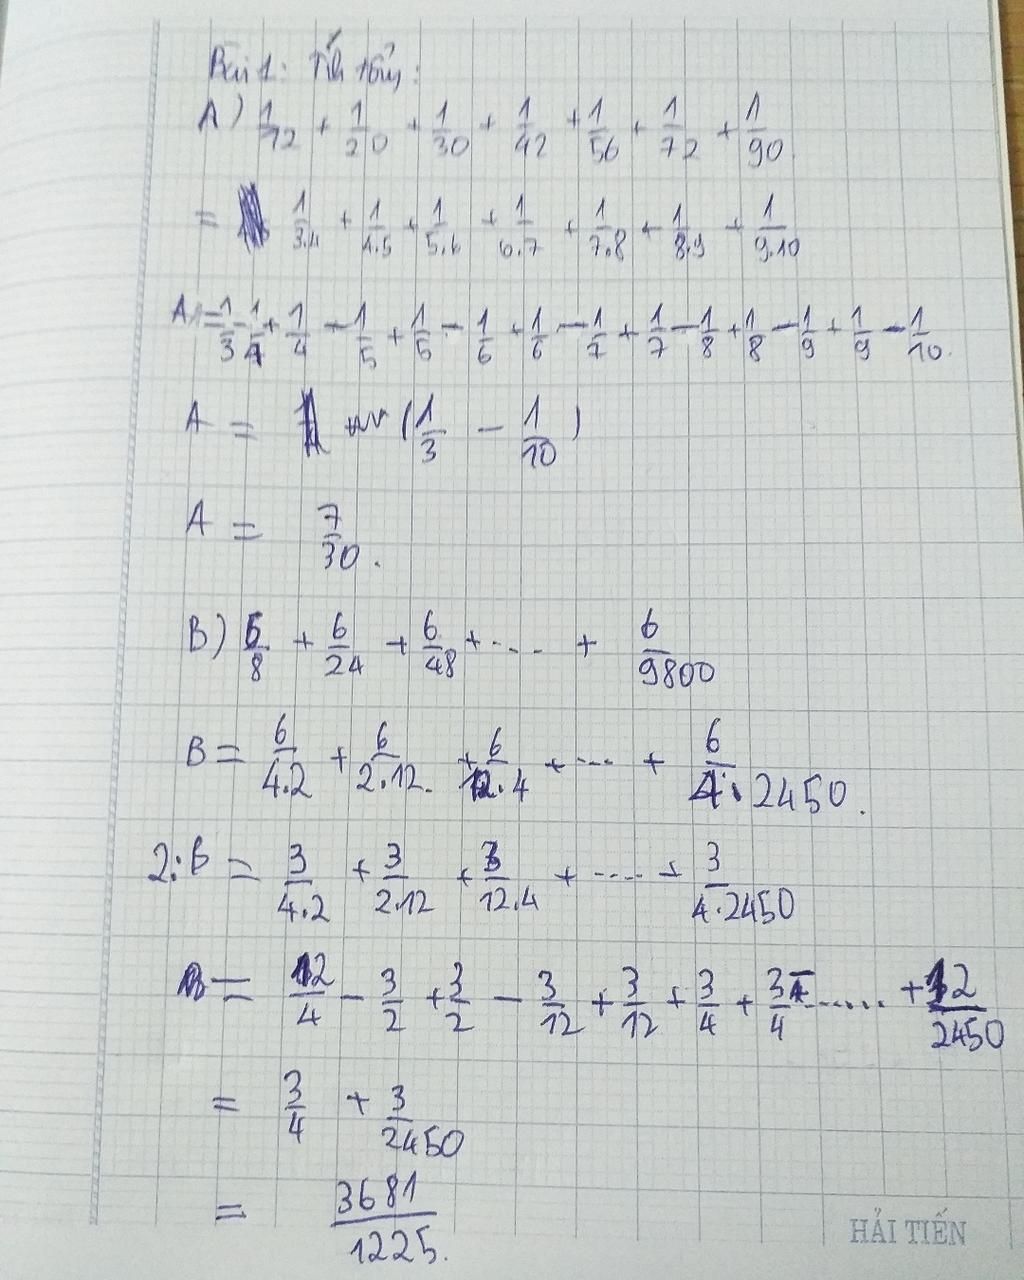 Bài 1: Tính tổng:
A) 1/12 + 1/20 + 1/30 + 1/42 + 1/56 + 1/72 + 1/90.
= 1/3.4 + 1/4.5 + 1/5.6 + 1/6.7 + 1/7.8 + 1/8.9 + 1/9.10
A = 1/3 - 1/4 + 1/4 - 1/5 + 1/5 - 1/6 + 1/6 - 1/7 + 1/7 - 1/8 + 1/8 - 1/9 + 1/9 - 1/10.
A = (1/3 - 1/10)
A = 7/30.
B) 6/8 + 6/24 + 6/48 + .... + 6/9800
B = 6/4.2 + 6/2.12. + 6/12.4 + .... + 6/4.2450.
2:B = 3/4.2 + 3/2.12 + 3/12.4 + .... + 3/4.2450
B = 12/4 - 3/2 + 3/2 - 3/12 + 3/12 + 3/4 + 3/4 - ..... + 12/2450
= 3/4 + 3/2450
= 3681/1225.
HẢI TIẾN